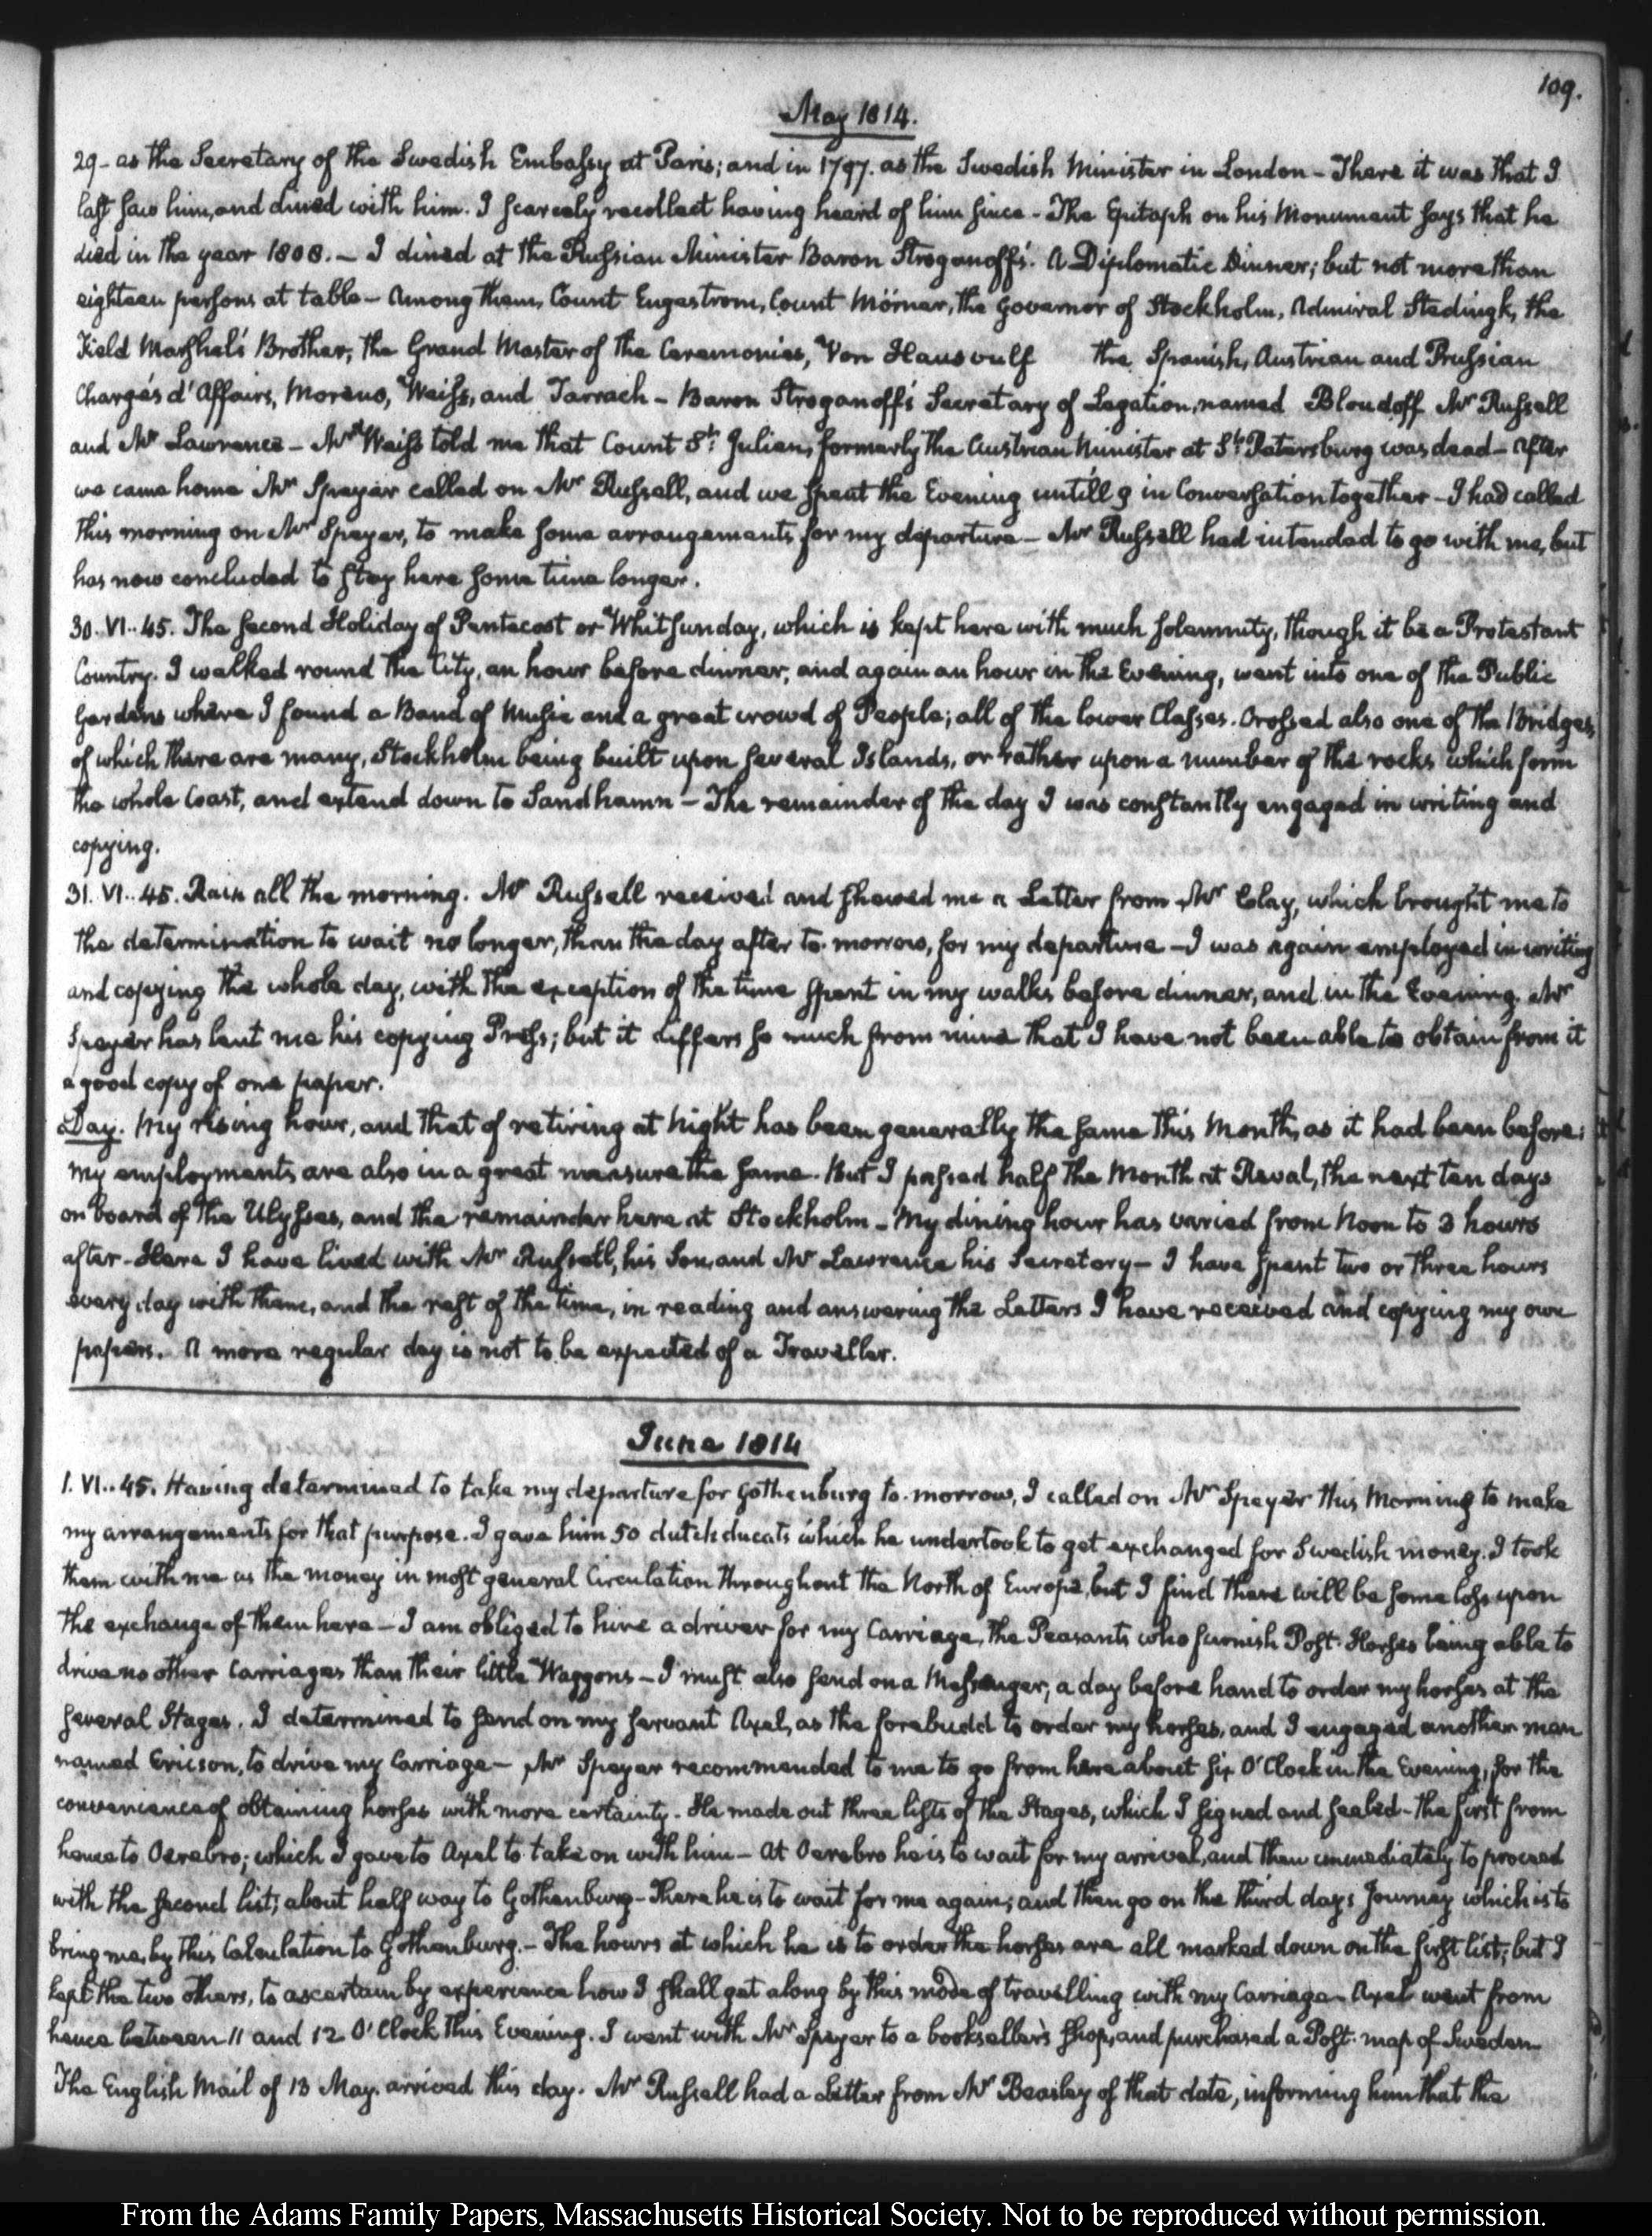 109.
May 1814.
29- as the Secretary of the Swedish Embassy at Paris; and in 1797. as the Swedish Minister in London - There it was that I
last saw him, and dined with him. I scarcely recollect having heard of him since - The Epitaph on his Monument says that he
died in the year 1808. - I dined at the Russian Minister Baron Stroganoff's. A Diplomatic Dinner; but not more than
eighteen persons at table - Among them, Count Engestrom, Count Mörner, the Governor of Stockholm, Admiral Stedingk, the
Field Marshal's Brother, the Grand Master of the Ceremonies, Von Hausvulf the Spanish, Austrian and Prussian
Chargés d'Affairs, Moreno, Weiss, and Tarrach - Baron Stroganoff's Secretary of Legation, named Bloudoff Mr Russell
and Mr Lawrence - Mr Weiss told me that Count St Julien, formerly the Austrian Minister at St Petersburg was dead - After
we came home Mr Speyer called on Mr Russell, and we spent the Evening untill 9 in Conversation together - I had called
this morning on Mr Speyer, to make some arrangements for my departure - Mr Russell had intended to go with me, but
has now concluded to stay here some time longer.
30. VI..45. The second Holiday of Pentecost or Whitsunday, which is kept here with much solemnity, though it be a Protestant
Country. I walked round the City, an hour before dinner, and again an hour in the Evening, went into one of the Public
Gardens where I found a Band of Music and a great crowd of People; all of the lower Classes. Crossed also one of the Bridges,
of which there are many, Stockholm being built upon several Islands, or rather upon a number of the rocks which form
the whole Coast, and extend down to Sandhamn - The remainder of the day I was constantly engaged in writing and
copying.
31. VI..45. Rain all the morning. Mr Russell received and shewed me a Letter from Mr Clay, which brought me to
the determination to wait no longer, than the day after to-morrow, for my departure - I was again employed in writing
and copying the whole day, with the exception of the time spent in my walks before dinner, and in the Evening. Mr
Speyer has lent me his copying Press; but it differs so much from mine that I have not been able to obtain from it
a good copy of one paper.
Day. My rising hour, and that of retiring at Night has been generally the same this Month, as it had been before:
my employments are also in a great measure the same. But I passed half the Month at Reval, the next ten days
on board of the Ulysses, and the remainder here at Stockholm - My dining hour has varied from Noon to 3 hours
after - Here I have lived with Mr Russell, his Son, and Mr Lawrence his Secretary - I have spent two or three hours
every day with them, and the rest of the time, in reading and answering the Letters I have received and copying my own
papers. A more regular day is not to be expected of a Traveller.
June 1814
1. VI..45. Having determined to take my departure for Gothenburg to-morrow, I called on Mr Speyer this Morning to make
my arrangements for that purpose. I gave him 50 dutch ducats which he undertook to get exchanged for Swedish money. I took
them with me as the money in most general Circulation throughout the North of Europe, but I find there will be some loss upon
the exchange of them here - I am obliged to hire a driver for my Carriage, the Peasants who furnish Post-Horses being able to
drive no other Carriages than their little Waggons - I must also send on a Messenger, a day before hand to order my horses at the
several Stages. I determined to send on my servant Axel, as the forebudd to order my horses, and I engaged another man
named Ericson, to drive my Carriage - Mr Speyer recommended to me to go from here about six O'Clock in the Evening, for the
convenience of obtaining horses with more certainty. He made out three lists of the Stages, which I signed and sealed - the first from
hence to Oerebro; which I gave to Axel to take on with him - At Oerebro he is to wait for my arrival, and then immediately to proceed
with the second list; about half way to Gothenburg - There he is to wait for me again; and then go on the third day's Journey which is to
bring me, by this Calculation to Gothenburg. - The hours at which he is to order the horses are all marked down on the first list; but I
kept the two others, to ascertain by experience how I shall get along by this mode of travelling with my Carriage - Axel went from
hence between 11 and 12 O'Clock this Evening. I went with Mr Speyer to a bookseller's shop, and purchased a Post-map of Sweden -
The English Mail of 13 May. arrived this day. Mr Russell had a Letter from Mr Beasley of that date, informing him that the
From the Adams Family Papers, Massachusetts Historical Society. Not to be reproduced without permission.